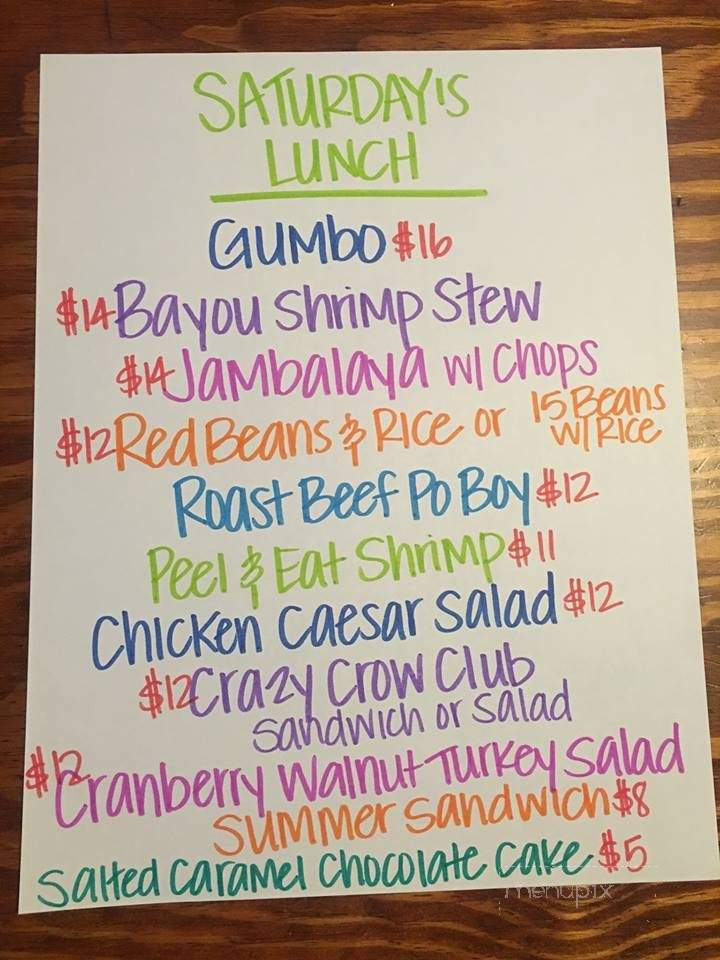 SATURDAY'S
LUNCH
GUMBO $16
$14 Bayou Shrimp Stew
$14 Jambalaya w/ Chops
$12 Red Beans & Rice or 15 Beans
w/ Rice
Roast Beef Po Boy $12
Peel & Eat Shrimp $11
Chicken Caesar Salad $12
$12 Crazy Crow Club
Sandwich or Salad
$12 Cranberry Walnut Turkey Salad
Summer Sandwich $8
Salted Caramel Chocolate Cake $5
menupix